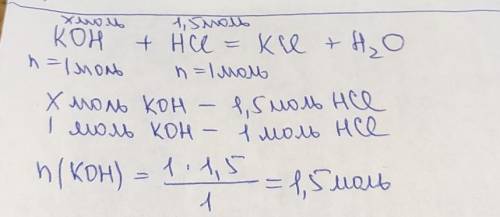 x моль 1,5 моль
KOH + HCl = KCl + H₂O
n = 1 моль n = 1 моль
X моль KOH – 1,5 моль HCl
1 моль KOH – 1 моль HCl
n(KOH) = 1 · 1,5 / 1 = 1,5 моль